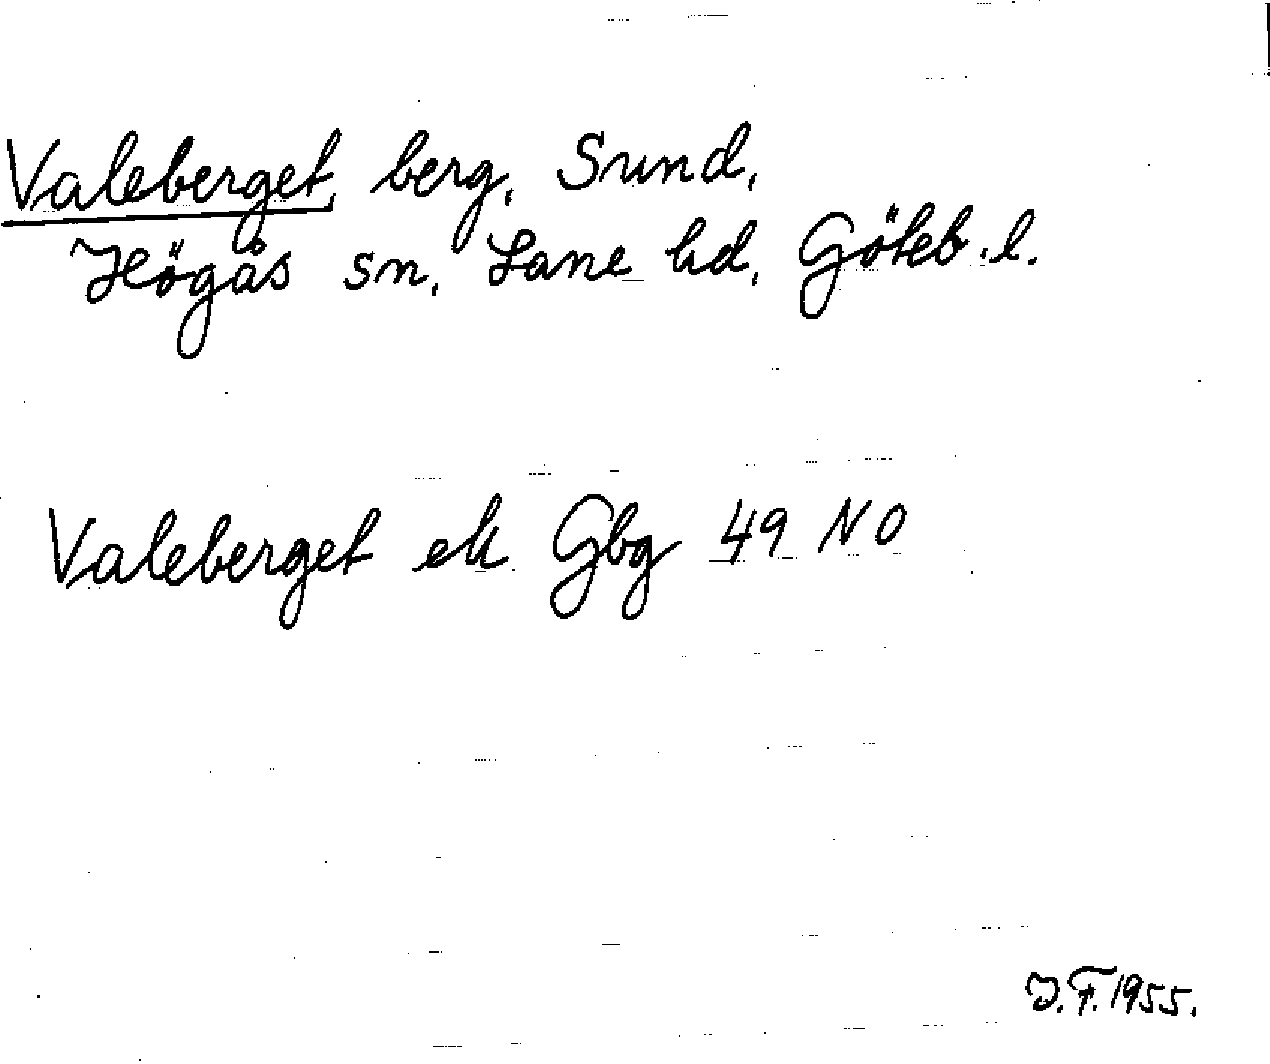 Valeberget, berg, Sund,
Högås sn, Lane hd, Göteb.l.
Valeberget ek Gbg 49 NO
J.F. 1955.